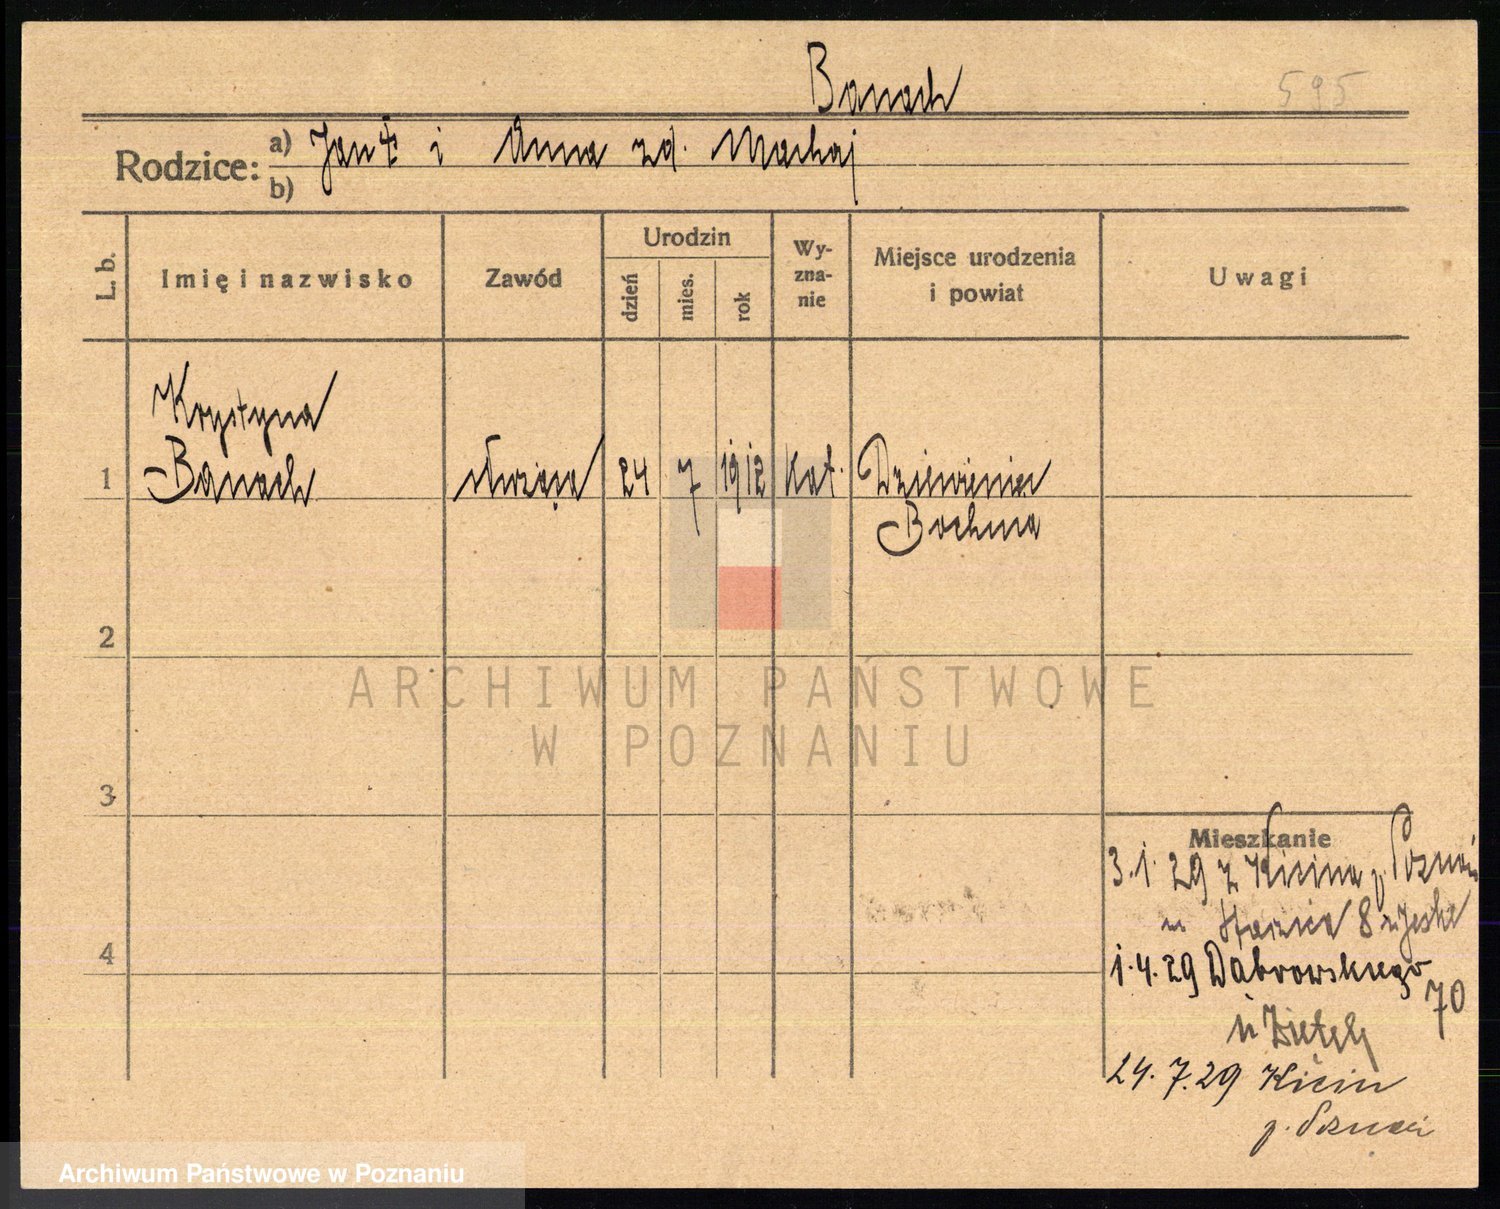 Banach
595
Rodzice:
a) Jan ‡ i Anna zd. Machaj
b)
L. b.
Imię i nazwisko
Zawód
Urodzin
dzień
mies.
rok
Wy-
zna-
nie
Miejsce urodzenia
i powiat
Uwagi
Krystyna
1 Banach służąca 24 7 1912 kat. Dziewienice
Bochnia
2
3
4
Mieszkanie
3.1.29 z Kicina p. Poznań
8
1.4.29 Dąbrowskiego
70
u Ziętek
24.7.29 Kicin
p. Poznań
ARCHIWUM PAŃSTWOWE
W POZNANIU
Archiwum Państwowe w Poznaniu